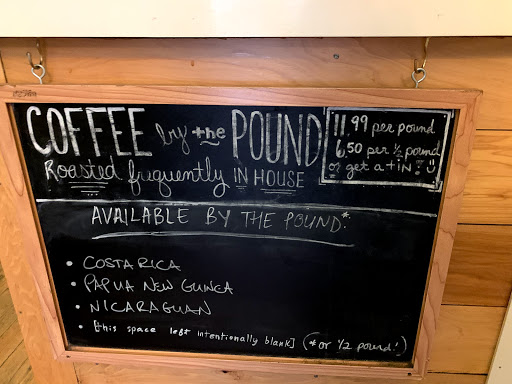 COFFEE by the POUND
Roasted frequently IN HOUSE
11.99 per pound
6.50 per ½ pound
or get a tin!
AVAILABLE BY THE POUND*:
• COSTA RICA
• PAPUA NEW GUINEA
• NICARAGUAN
• [this space left intentionally blank] (* or 1/2 pound!)